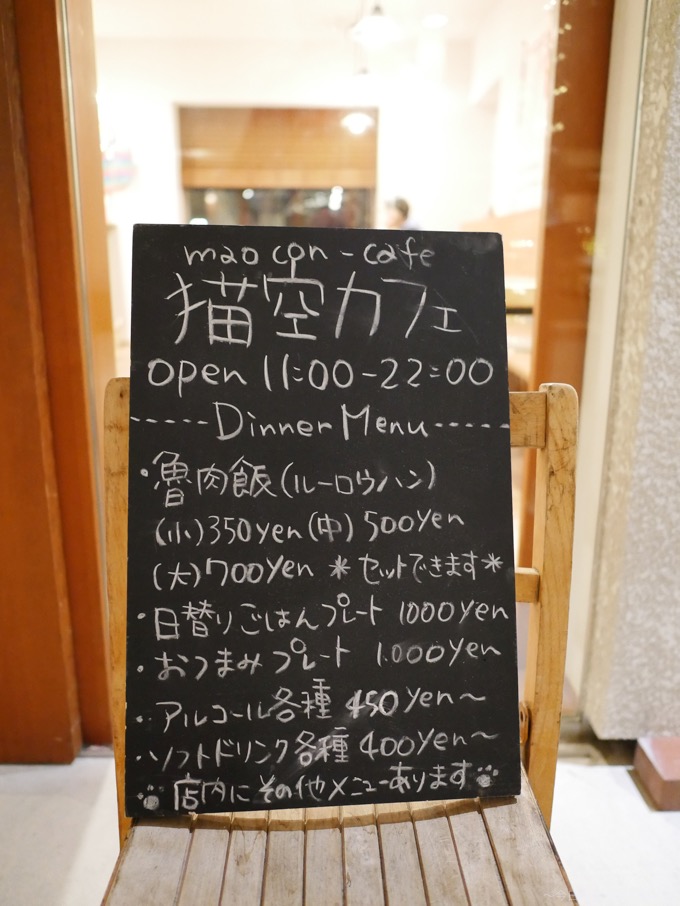 mao con-cafe
猫空カフェ
open 11:00-22:00
-----Dinner Menu-----
・魯肉飯(ルーロウハン)
(小)350yen(中)500yen
(大)700yen *セットできます*
・日替りごはんプレート 1000yen
・おつまみプレート 1.000yen
・アルコール各種 450yen~
・ソフトドリンク各種 400yen~
店内にその他メニューあります